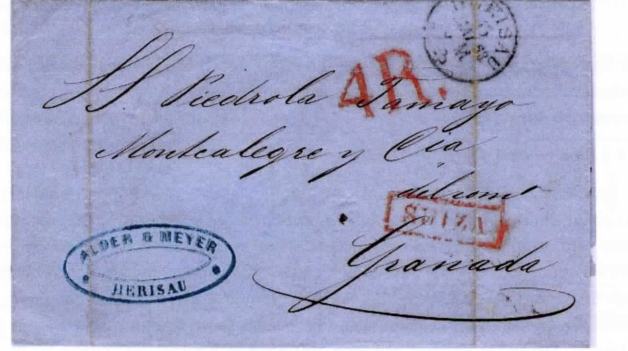 HERISAU
4R.
SS Piedrola Tamayo
Montealegre y Cía
del com^o
SUIZA
Granada
ALDER & MEYER
HERISAU